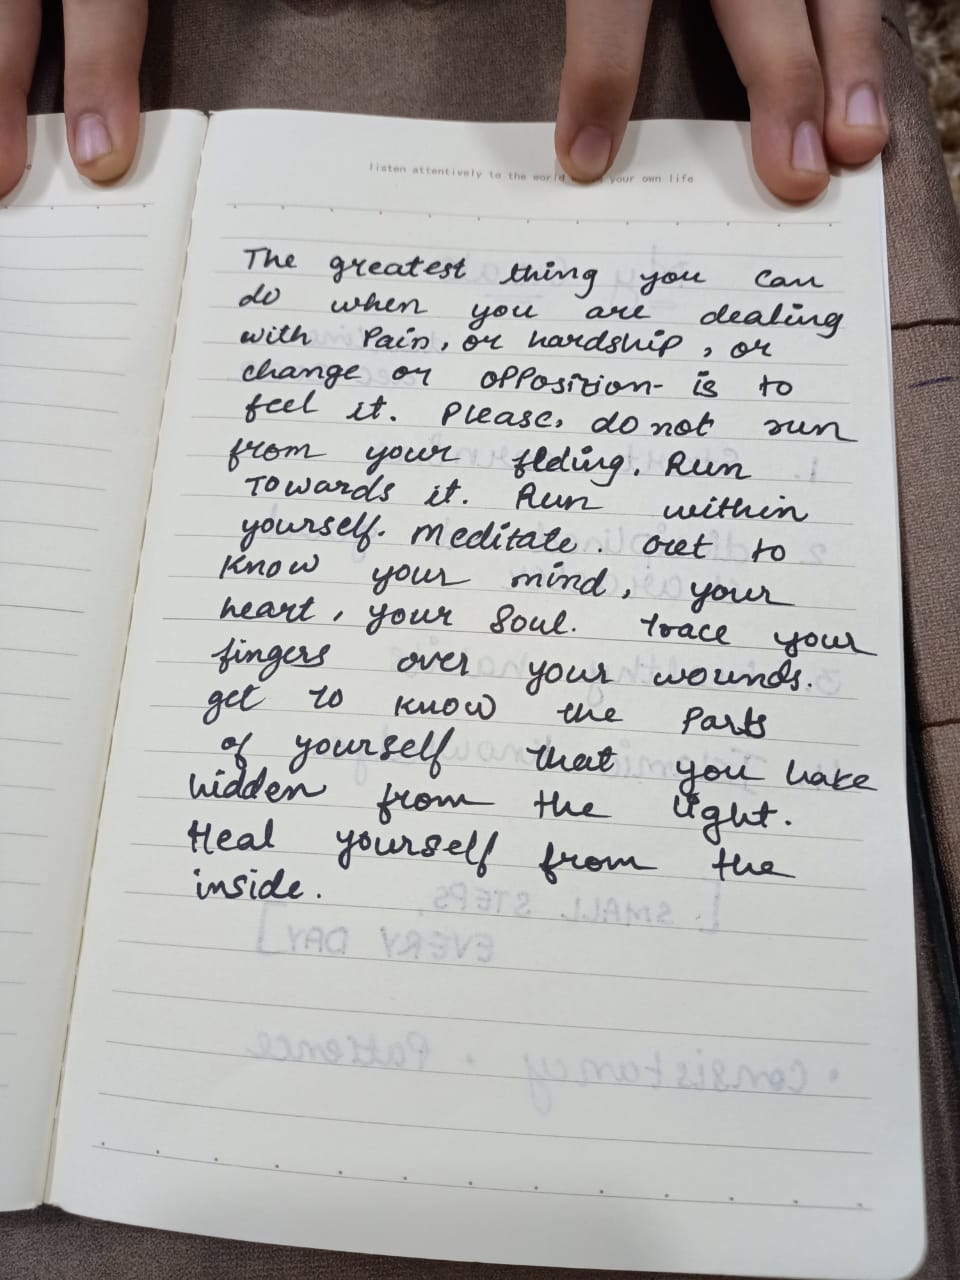 listen attentively to the world your own life
The greatest thing you can
do when you are dealing
with Pain, or hardship, or
change or opposition- is to
feel it. Please, do not run
from your feling, Run
Towards it. Run within
yourself. Meditate. Get to
Know your mind, your
heart, your Soul. Trace your
fingers over your wounds.
get to know the Parts
of yourself that you have
hidden from the light.
Heal yourself from the
inside.
[SMALL STEPS,
EVERY DAY]
• Consistancy • Patience